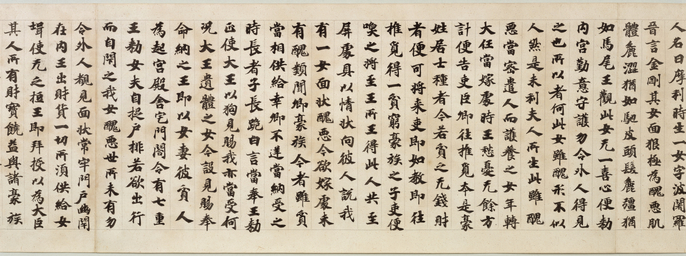 人名曰摩利時生一女字波闍羅
晉言金剛其女面狠極為醜惡肌
體麁澀猶如駝皮頭髮麁彊猶
如馬尾王觀此女无一喜心便勅
內宮勤意守護勿令外人得見
之也所以者何此女雖醜形不似
人然是末利夫人所生此雖醜
惡當密遣人而護養之女年轉
大任當嫁處時王愁憂无餘方
計便告吏臣卿往推覓本是豪
姓居士種者今若貧乏无錢財
者便可將來吏即如教即往
推覓得一貧窮豪族之子吏便
喚之將至王所王得此人共至
屏處具以情狀向彼人說我
有一女面狀醜惡今欲嫁處未
有酬類聞卿豪族今者雖貧
當相供給幸卿不逆當納受之
時長者子長跪白言當奉王勅
正使大王以狗見賜我亦當受何
況大王遺體之女今設見賜奉
命納之王即以女妻彼貧人
為起宮殿舍宅門閤令有七重
王勅女夫自捉戶排若欲出行
而自閉之我女醜惡世所未有勿
令外人覩見面狀常牢門戶幽閉
在內王出財貨一切所須供給女
婿使无乏短王即拜授以為大臣
其人所有財寶饒益與諸豪族